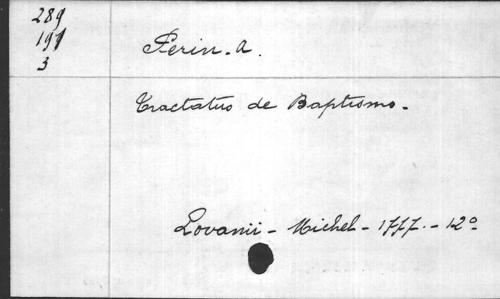 289
191
3
Perin. a.
Tractatus de Baptismo.
Lovanii - Michel - 1777. - 12º